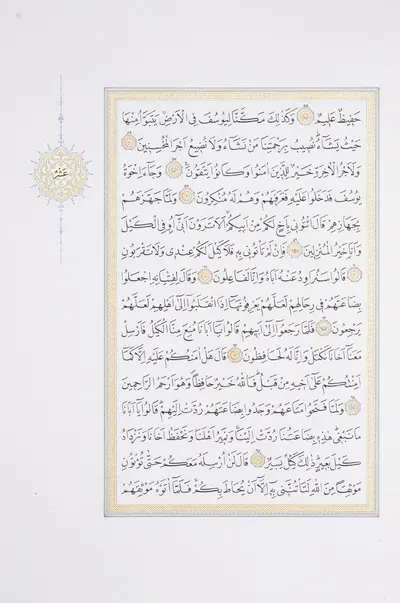 حَفِيظٌ عَلِيمٌ وَكَذٰلِكَ مَكَّنَّا لِيُوسُفَ فِي الْاَرْضِ يَتَبَوَّاُ مِنْهَا
حَيْثُ يَشَٓاءُ نُصِيبُ بِرَحْمَتِنَا مَنْ نَشَٓاءُ وَلَا نُضِيعُ اَجْرَ الْمُحْسِنِينَ
وَلَاَجْرُ الْاٰخِرَةِ خَيْرٌ لِلَّذِينَ اٰمَنُوا وَكَانُوا يَتَّقُونَ وَجَٓاءَ اِخْوَةُ
يُوسُفَ فَدَخَلُوا عَلَيْهِ فَعَرَفَهُمْ وَهُمْ لَهُ مُنْكِرُونَ وَلَمَّا جَهَّزَهُمْ
بِجَهَازِهِمْ قَالَ ائْتُونِي بِاَخٍ لَكُمْ مِنْ اَبِيكُمْ اَلَا تَرَوْنَ اَنِّٓي اُوفِي الْكَيْلَ
وَاَنَا۬ خَيْرُ الْمُنْزِلِينَ فَاِنْ لَمْ تَأْتُونِي بِهِ فَلَا كَيْلَ لَكُمْ عِنْدِي وَلَا تَقْرَبُونِ
قَالُوا سَنُرَاوِدُ عَنْهُ اَبَاهُ وَاِنَّا لَفَاعِلُونَ وَقَالَ لِفِتْيَانِهِ اجْعَلُوا
بِضَاعَتَهُمْ فِي رِحَالِهِمْ لَعَلَّهُمْ يَعْرِفُونَهَٓا اِذَا انْقَلَبُٓوا اِلٰٓى اَهْلِهِمْ لَعَلَّهُمْ
يَرْجِعُونَ فَلَمَّا رَجَعُٓوا اِلٰٓى اَبِيهِمْ قَالُوا يَٓا اَبَانَا مُنِعَ مِنَّا الْكَيْلُ فَاَرْسِلْ
مَعَنَٓا اَخَانَا نَكْتَلْ وَاِنَّا لَهُ لَحَافِظُونَ قَالَ هَلْ اٰمَنُكُمْ عَلَيْهِ اِلَّا كَمَٓا
اَمِنْتُكُمْ عَلٰٓى اَخِيهِ مِنْ قَبْلُ فَاللّٰهُ خَيْرٌ حَافِظًا وَهُوَ اَرْحَمُ الرَّاحِمِينَ
وَلَمَّا فَتَحُوا مَتَاعَهُمْ وَجَدُوا بِضَاعَتَهُمْ رُدَّتْ اِلَيْهِمْ قَالُوا يَٓا اَبَانَا
مَا نَبْغِي هٰذِهِ بِضَاعَتُنَا رُدَّتْ اِلَيْنَا وَنَمِيرُ اَهْلَنَا وَنَحْفَظُ اَخَانَا وَنَزْدَادُ
كَيْلَ بَعِيرٍ ذٰلِكَ كَيْلٌ يَسِيرٌ قَالَ لَنْ اُرْسِلَهُ مَعَكُمْ حَتّٰى تُؤْتُونِ
مَوْثِقًا مِنَ اللّٰهِ لَتَأْتُنَّنِي بِهِ اِلَّٓا اَنْ يُحَاطَ بِكُمْ فَلَمَّٓا اٰتَوْهُ مَوْثِقَهُمْ
عشر